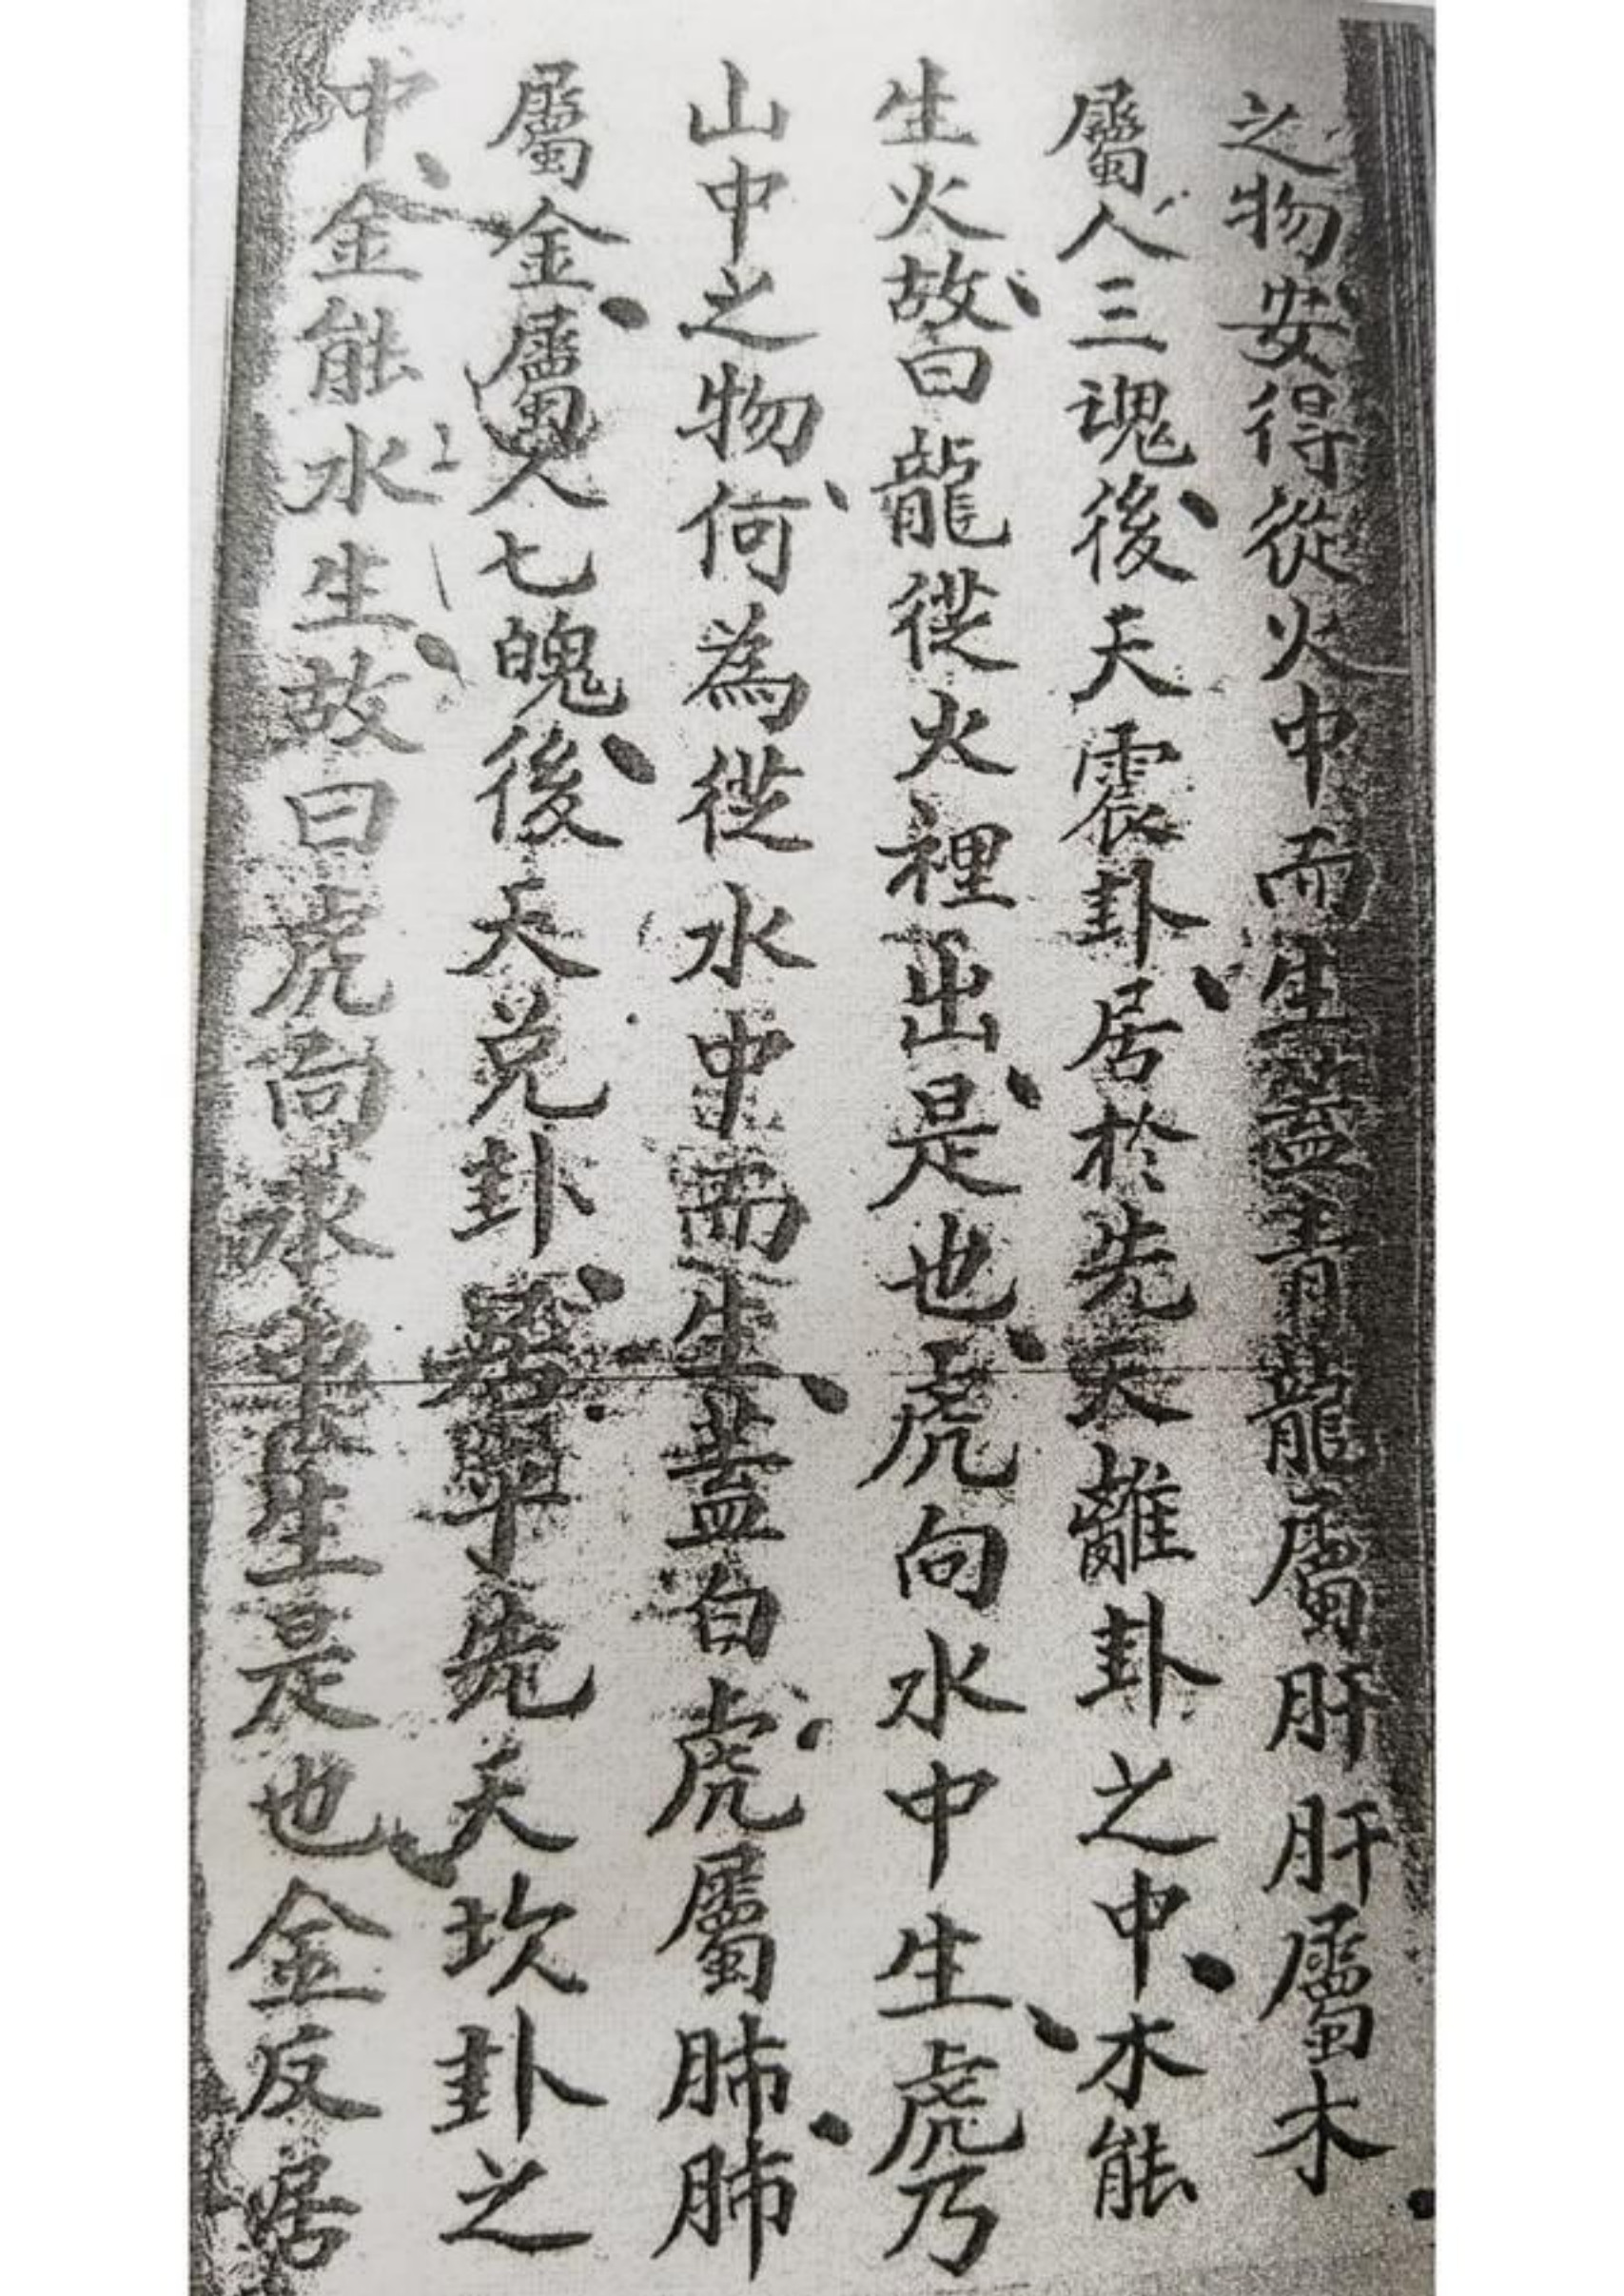 之物安得從火中而生蓋青龍屬肝肝屬木
屬人三魂後天震卦居於先天離卦之中木能
生火故曰龍從火裡出是也虎向水中生虎乃
山中之物何為從水中而生蓋白虎屬肺肺
屬金屬人七魄後天兌卦居於先天坎卦之
中金能水生故曰虎向水中生是也金反居